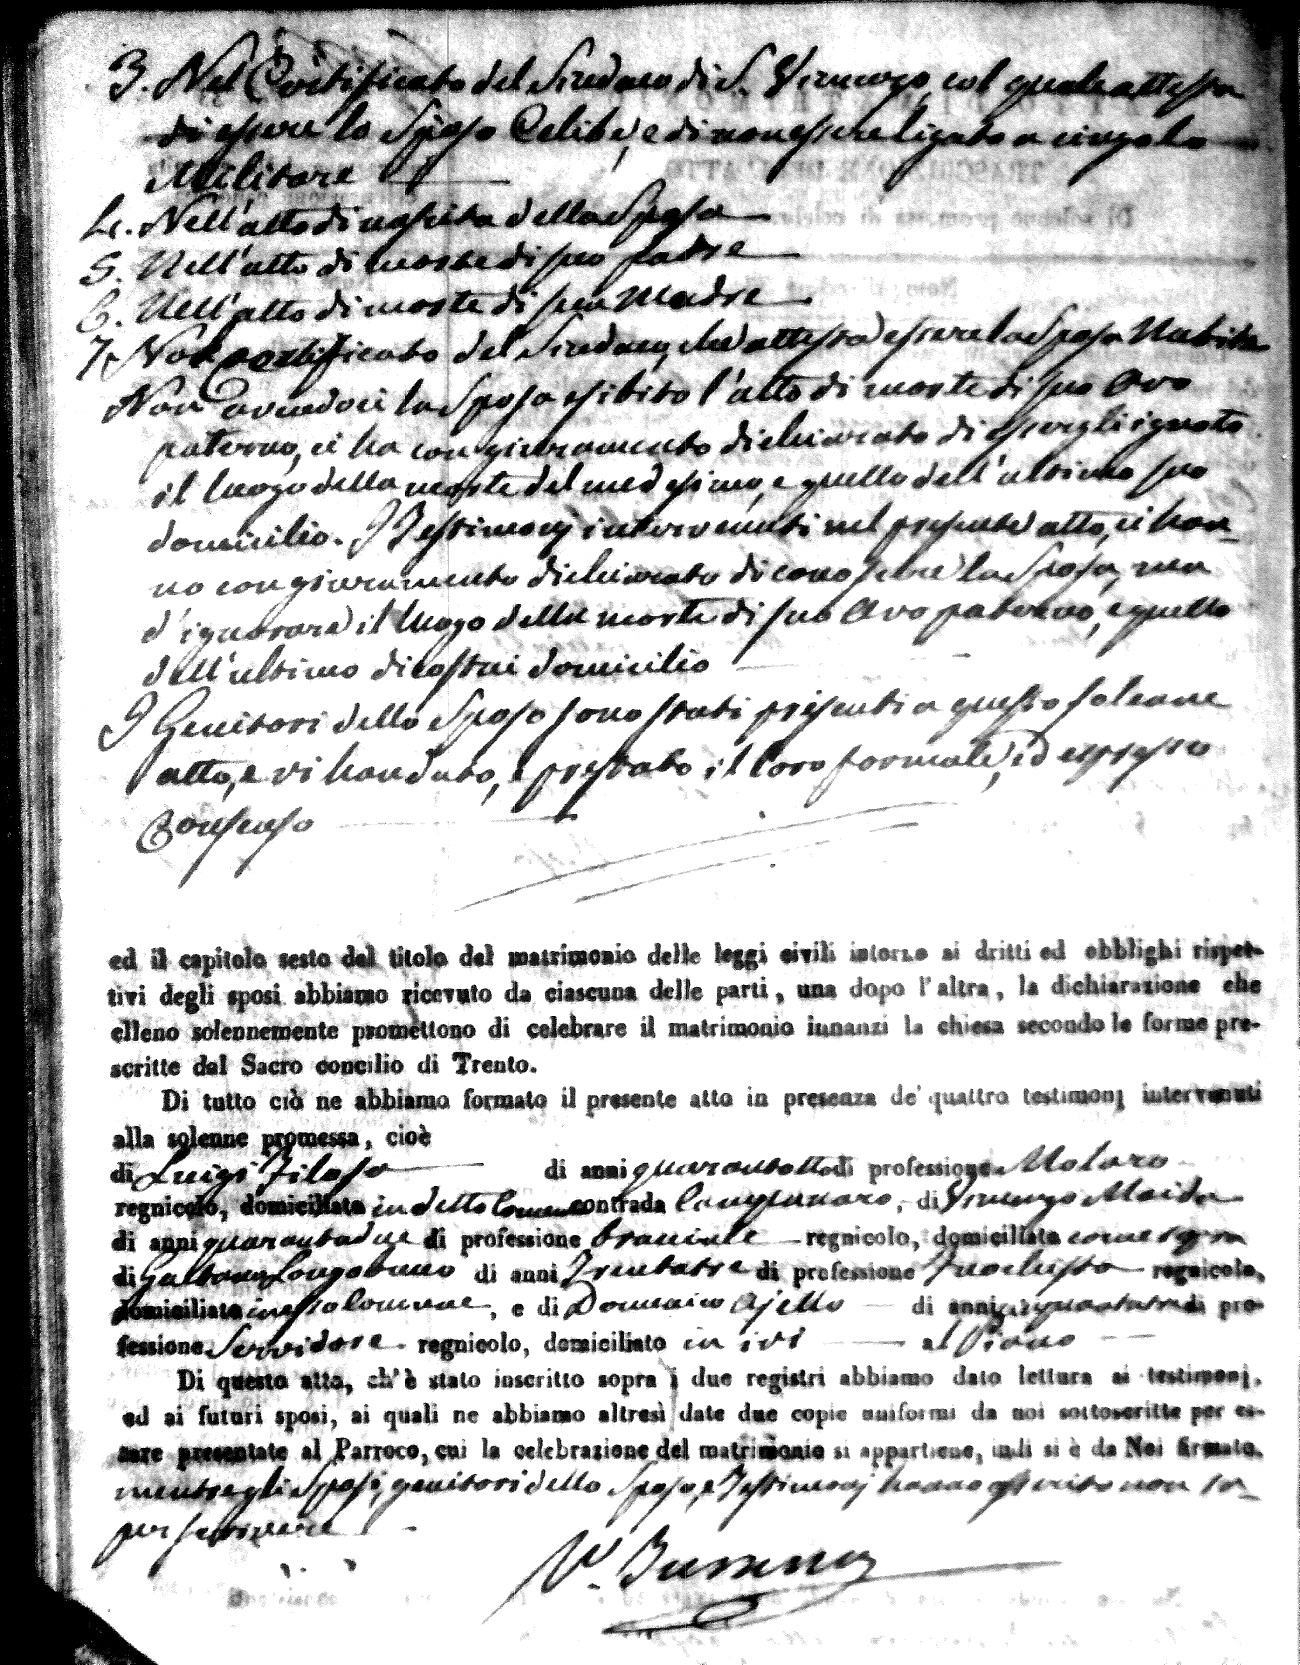 3. Nel Certificato del Sindaco di S. Vincenzo, col quale attessa
di essere lo Sposo Celibe, e di non essere ligato a cingolo
Militare
4. Nell'atto di nascita della Sposa
5. Nell'atto di morte di suo padre
6. Nell'atto di morte di sua Madre
7. Nel certificato del Sindaco, che attessa essere la Sposa Nubile
Non avendoci la Sposa esibito l'atto di morte di suo Avo
paterno, ci ha con giuramento dichiarato di essergli ignoto
il luogo della morte del medesimo, e quello dell'ultimo suo
domicilio. I Testimonj intervenuti nel presente atto, ci han-
no con giuramento dichiarato di conoscere la Sposa, ma
d'ignorare il luogo della morte di suo Avo paterno, e quello
dell'ultimo di costui domicilio
I Genitori dello Sposo sono stati presenti a questo solenne
atto, e vi han dato, e prestato il loro formale, ed espresso
Consenso
ed il capitolo sesto del titolo del matrimonio delle leggi civili intorno ai dritti ed obblighi rispet-
tivi degli sposi abbiamo ricevuto da ciascuna delle parti, una dopo l'altra, la dichiarazione che
elleno solennemente promettono di celebrare il matrimonio innanzi la chiesa secondo le forme pre-
scritte dal Sacro concilio di Trento.
Di tutto ciò ne abbiamo formato il presente atto in presenza de' quattro testimonj intervenuti
alla solenne promessa, cioè
di Luigi Filoso di anni quarantotto di professione Molaro
regnicolo, domiciliato in detto Comune contrada Campanaro, di Vincenzo Maida
di anni quarantadue di professione bracciale regnicolo, domiciliato come sopra
di Gaetano Longobucco di anni Trentatre di professione regnicolo,
domiciliato in esso Comune, e di Domenico Ajello di anni di pro-
fessione Servidore regnicolo, domiciliato in ivi al Piano
Di questo atto, ch'è stato inscritto sopra i due registri abbiamo dato lettura ai testimonj,
ed ai futuri sposi, ai quali ne abbiamo altresì date due copie uniformi da noi sottoscritte per es-
sere presentate al Parroco, cui la celebrazione del matrimonio si appartiene, indi si è da Noi firmato,
mentre gli Sposi, genitori dello Sposo, e Testimonj hanno asserito non sa-
per scrivere